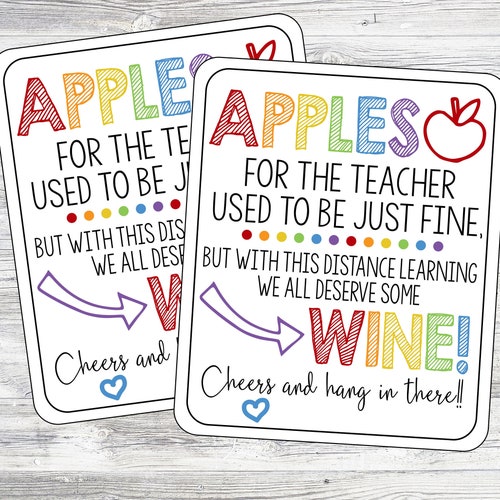 APPLES
FOR THE
USED TO BE
BUT WITH THIS
WE ALL
Cheers and
APPLES
FOR THE TEACHER
USED TO BE JUST FINE,
BUT WITH THIS DISTANCE LEARNING
WE ALL DESERVE SOME
WINE!
Cheers and hang in there!!